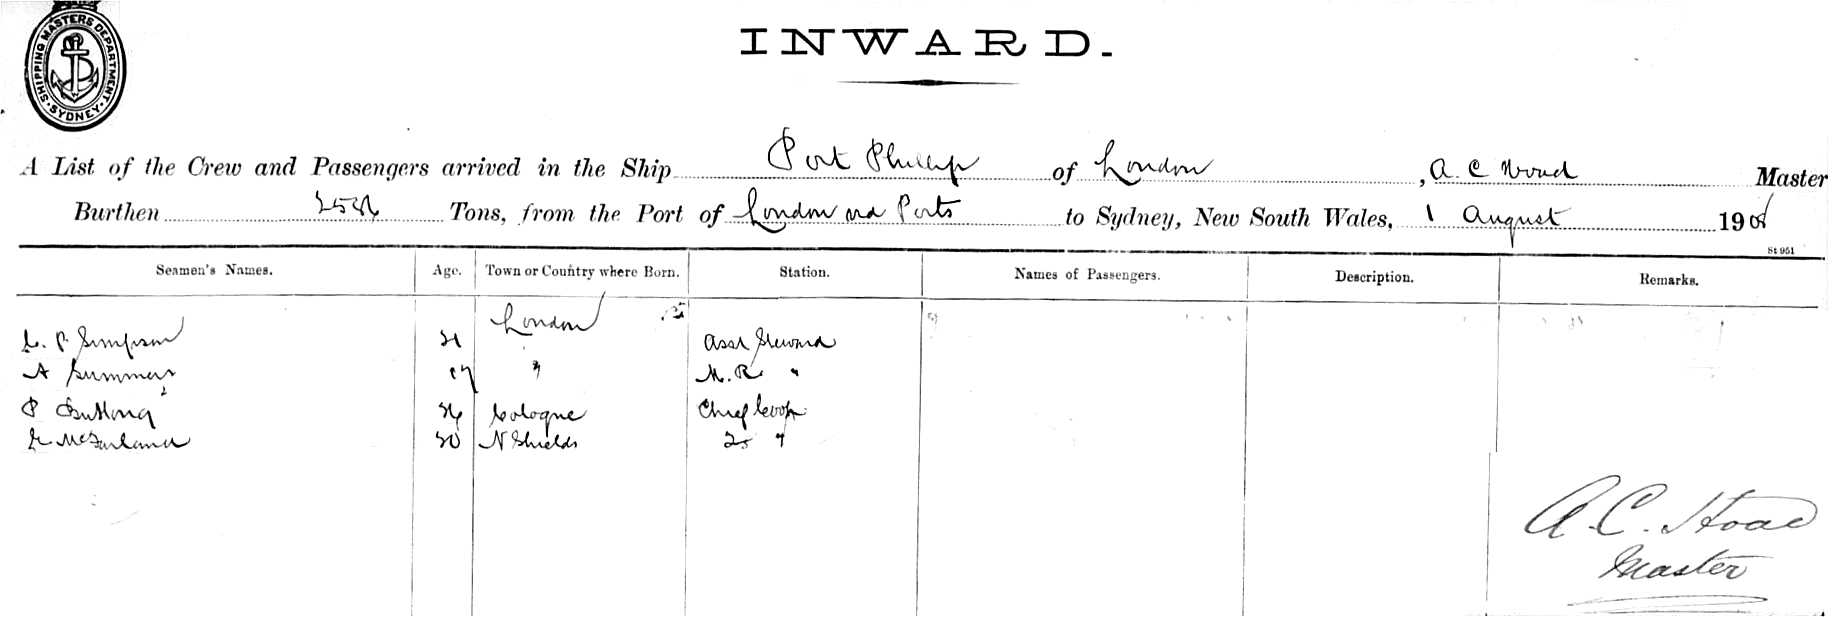 SHIPPING MASTERS DEPARTMENT. SYDNEY.
INWARD.
A List of the Crew and Passengers arrived in the Ship Port Phillip of London, A. C Master
Burthen Tons, from the Port of London and Ports to Sydney, New South Wales, 1 August 190
St 951
Seamen's Names. Age. Town or Country where Born. Station. Names of Passengers. Description. Remarks.
P. Simpson 21 London Asst Steward
A Summers 17 " M. R. "
P Cologne Chief Cook
McFarland 20 N Shields 2 "
A. C. Hoad
Master